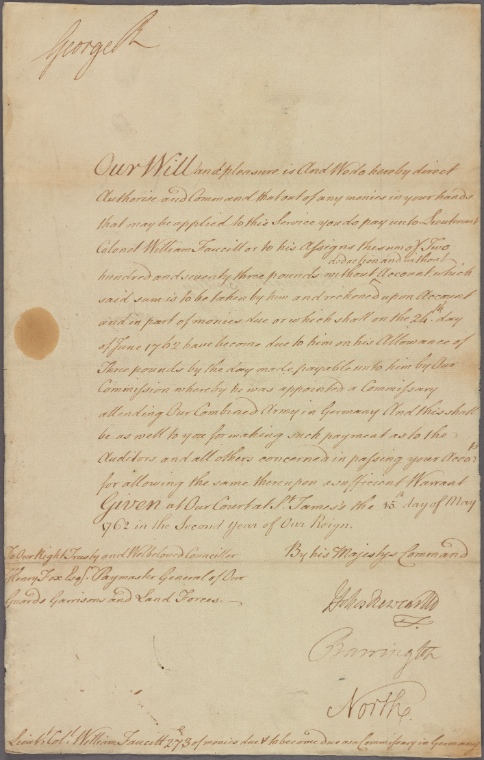 George R
Our Will and pleasure is And We do hereby direct
Authorise and Command that out of any monies in your hands
that may be applied to this Service you do pay unto Lieutenant
Colonel William Faucitt or to his Assigns the sum of Two
deduction and without
hundred and seventy three pounds without Account which
said sum is to be taken by him and reckoned upon Account
and in part of monies due or which shall on the 24th. day
of June 1762 have become due to him on his Allowance of
Three pounds by the day made payable unto him by Our
Commission whereby he was appointed a Commissary
attending Our Combined Army in Germany And this shall
be as well to you for making such payment as to the
Auditors and all others concerned in passing your Accots
for allowing the same thereupon a sufficient Warrant
Given at Our Court at St. James's the 15th day of May
1762 in the Second Year of Our Reign.
To Our Right Trusty and Welbeloved Councillor
Henry Fox Esqr. Paymaster General of Our
Guards Garrisons and Land Forces.
By his Majestys Command
Holles Newcastle
Barrington
North
Lieut. Colo. William Faucitt 273 of monies due & to become due as a Commissary in Germany